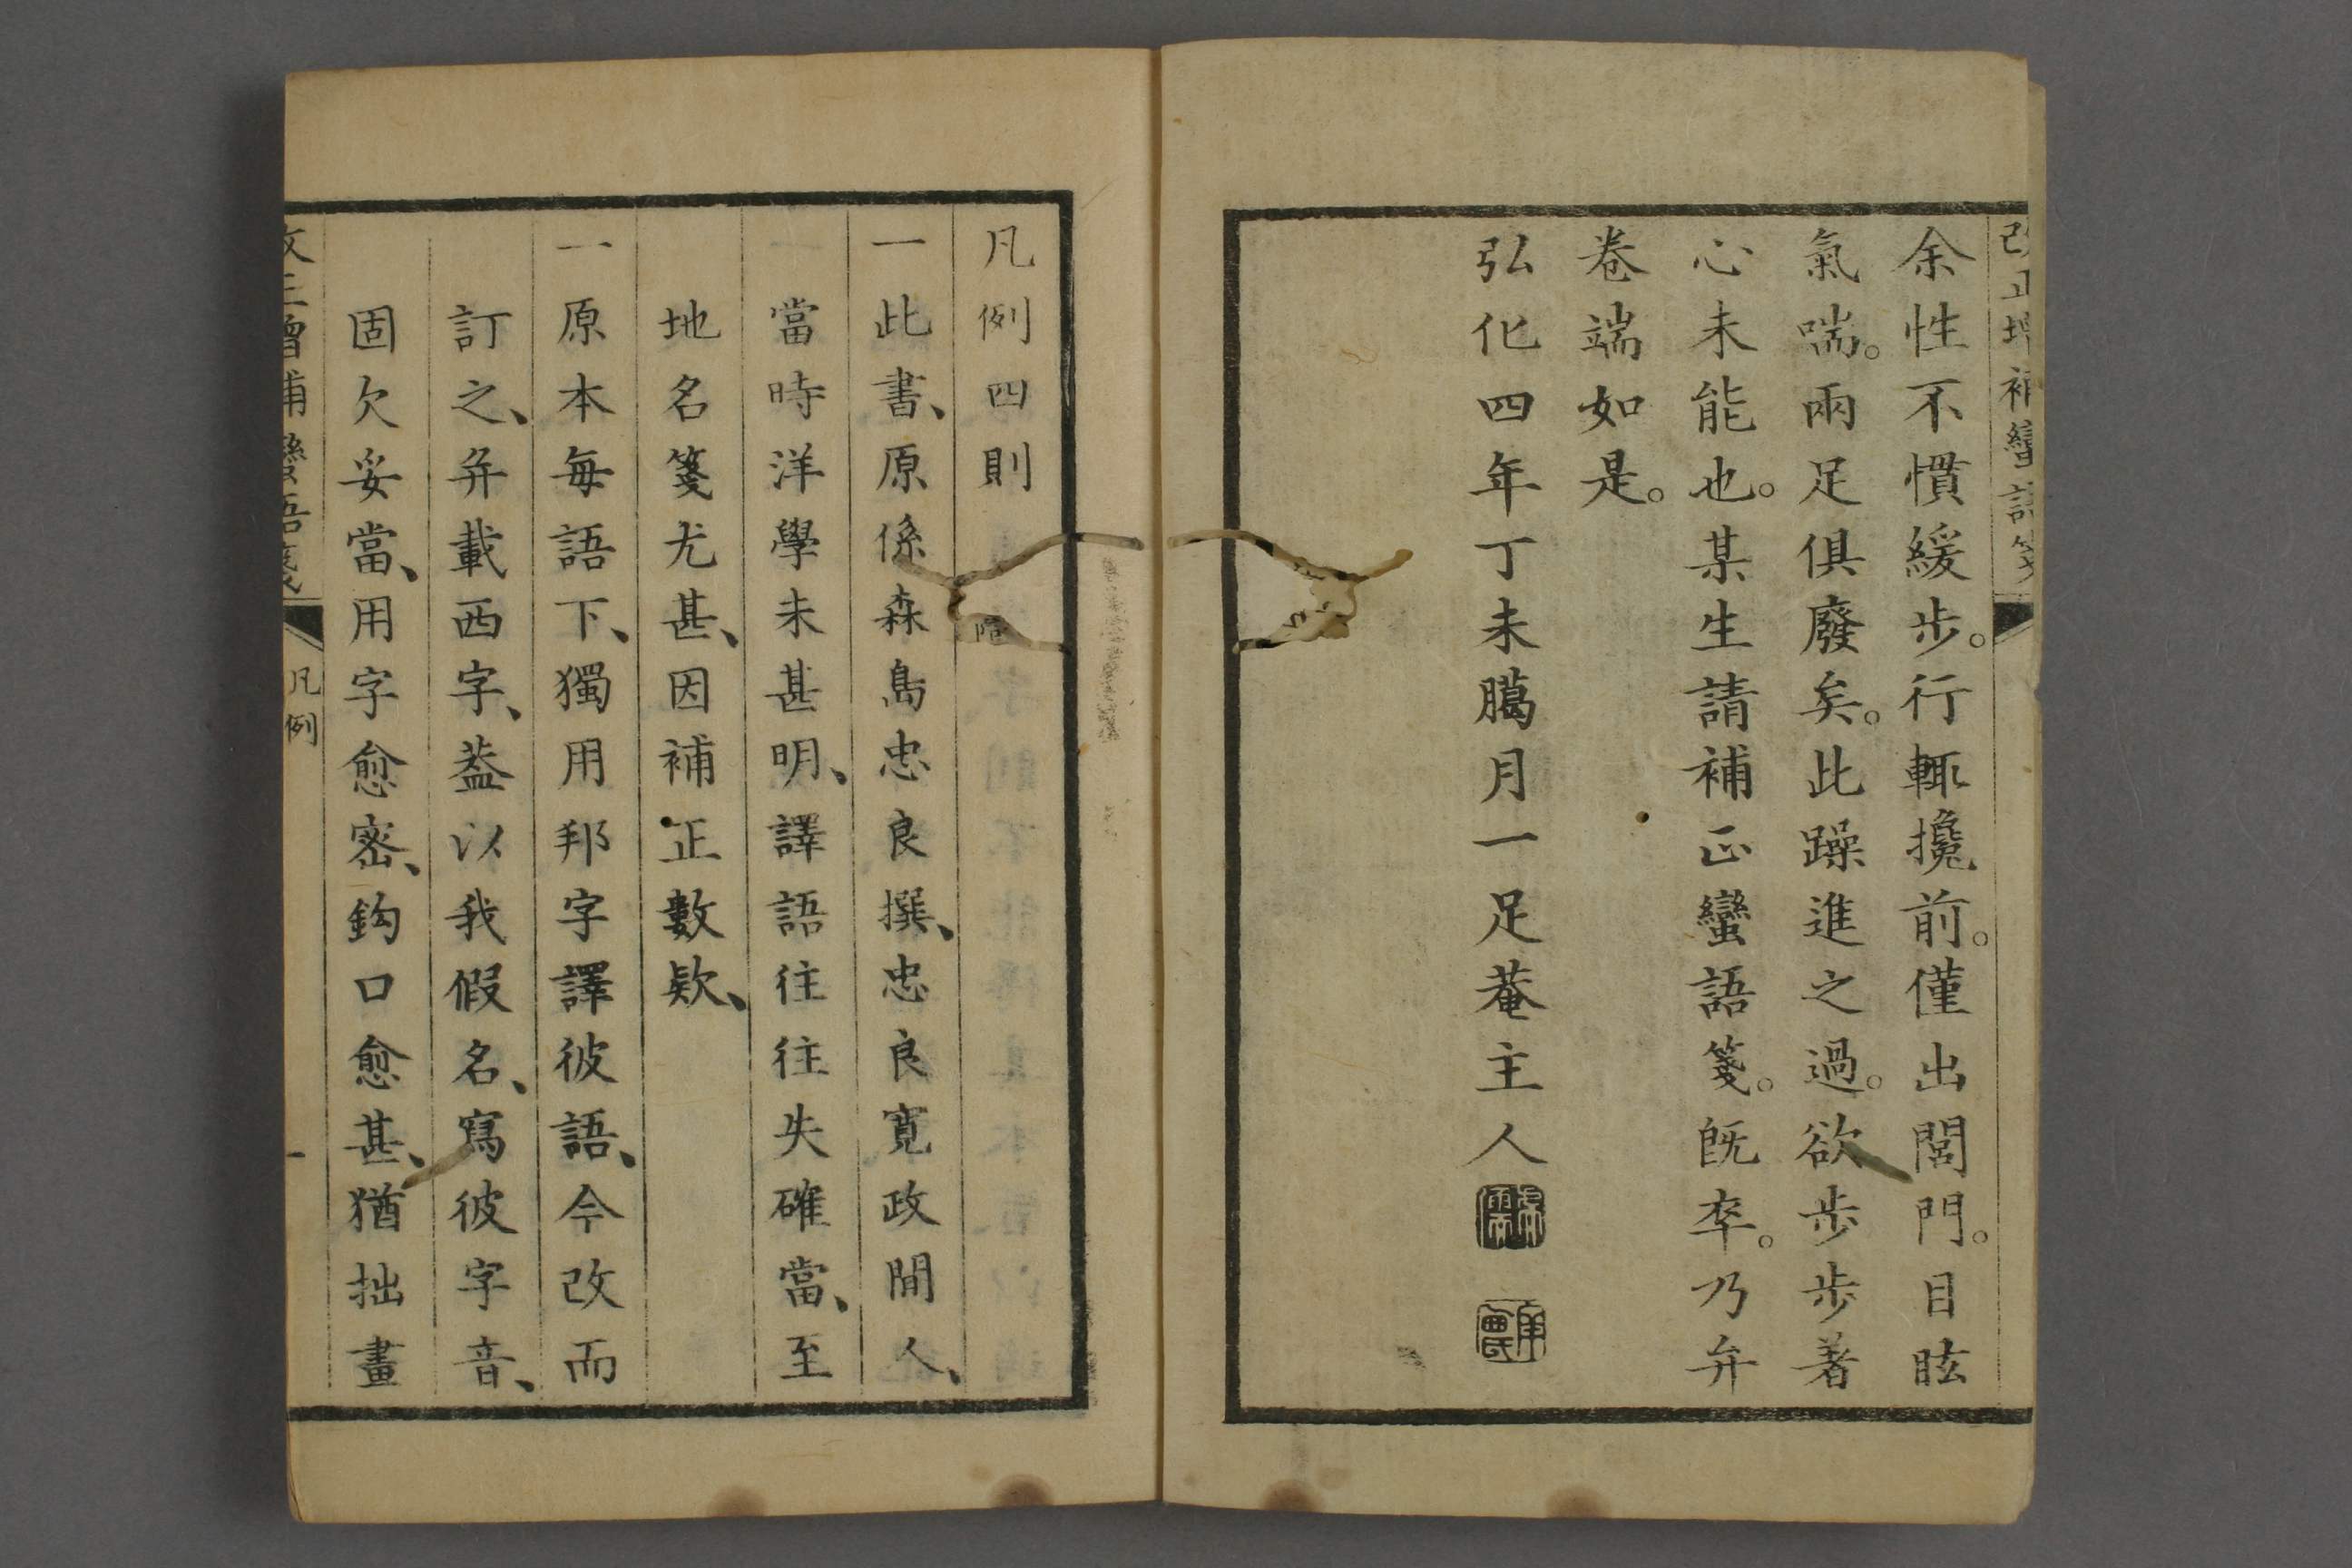 改正増補蠻語箋
余性不慣緩步。行輒攙前。僅出閭門。目眩
氣喘。兩足俱廢矣。此躁進之過。欲步步著
心未能也。某生請補正蠻語箋。旣卒。乃弁
卷端如是。
弘化四年丁未臈月一足菴主人
凡例四則
一此書、原係森島忠良撰、忠良寛政間人、
當時洋學未甚明、譯語往往失確當、至
地名箋尤甚、因補正數欵、
一原本每語下、獨用邦字譯彼語、今改而
訂之、弁載西字、葢以我假名、寫彼字音、
固欠妥當、用字愈密、鈎口愈甚、猶拙畫
改正增補蠻語箋
凡例
一